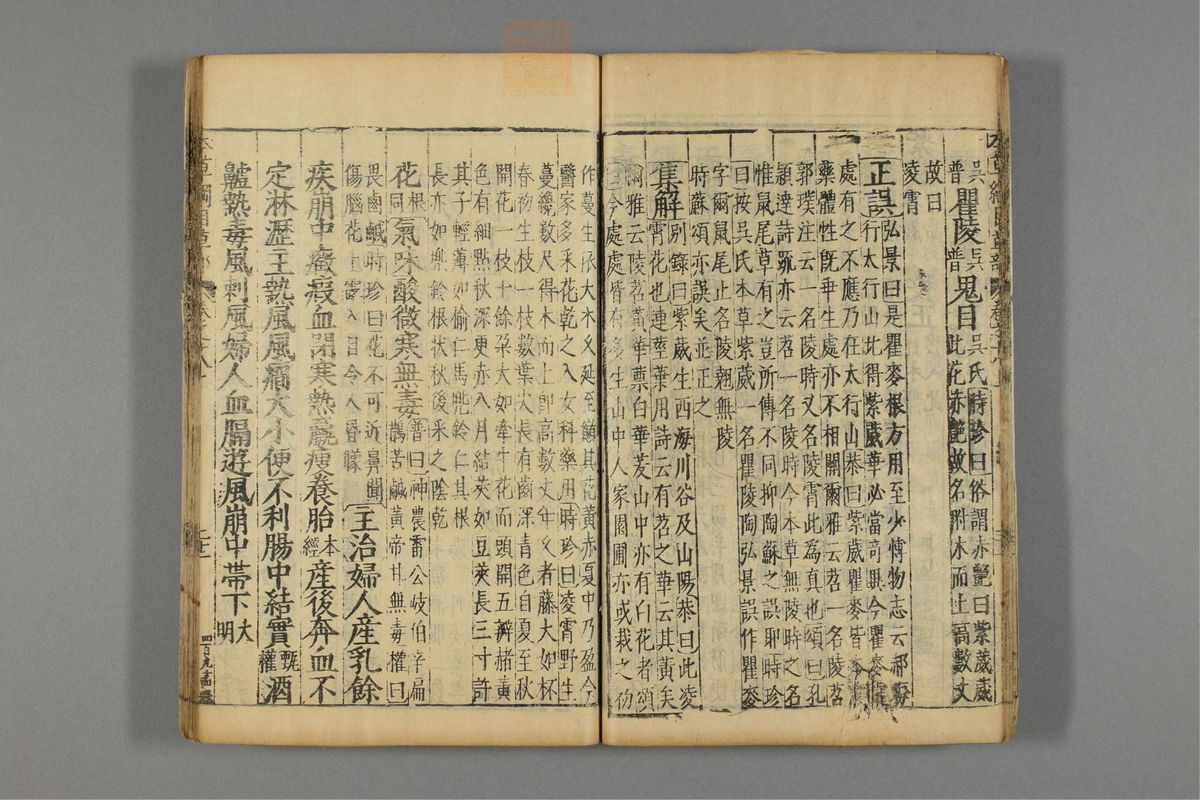 吳普
瞿陵
吳普
鬼目
吳氏
時珍曰俗謂赤艷曰紫葳葳
此花赤艷故名附木而上高數丈
故曰
凌霄
正誤
弘景曰是瞿麥根方用至少博物志云郝晦
行太行山此得紫葳華必當奇異今瞿麥華
處有之不應乃在太行山恭曰紫葳瞿麥皆本
藥體性既乖生處亦不相關爾雅云苕一名陵苕
郭璞注云一名陵時又名陵霄此為真也頌曰孔
穎達詩疏亦云苕一名陵時今本草無陵時之名
惟鼠尾草有之豈所傳不同抑陶蘇之誤耶時珍
曰按吳氏本草紫葳一名瞿陵陶弘景誤作瞿麥
字爾鼠尾止名陵翹無陵
時蘇頌亦誤矣並正之
集解
別錄曰紫葳生西海川谷及山陽恭曰此凌
霄花也連莖葉用詩云有苕之華云其黃矣
爾雅云苕黃華蔈白華茇山中亦有白花者頌
曰今處處皆有多生山中人家園圃亦或栽之初
作蔓生依大木久延至顛其花黃赤夏中乃盈今
醫家多采花乾之入女科藥用時珍曰凌霄野生
蔓纔數尺得木而上即高數丈年久者藤大如杯
春初生枝一枝數葉尖長有齒深青色自夏至秋
開花一枝十餘朶大如牽牛花而頭開五瓣赭黃
色有細點秋深更赤八月結莢如豆莢長三寸許
其子輕薄如榆仁馬兜鈴仁其根
長亦如兜鈴根狀秋後采之陰乾
花根同
氣味酸微寒無毒
普曰神農雷公岐伯辛扁
鵲苦鹹黃帝甘無毒權曰
畏鹵鹹時珍曰花不可近鼻聞
傷腦花上露入目令人昏矇
主治婦人產乳餘
疾崩中癥瘕血閉寒熱羸瘦養胎本經產後奔血不
定淋瀝主熱風風癎大小便不利腸中結實甄權酒
齇熱毒風刺風婦人血膈遊風崩中帶下大明